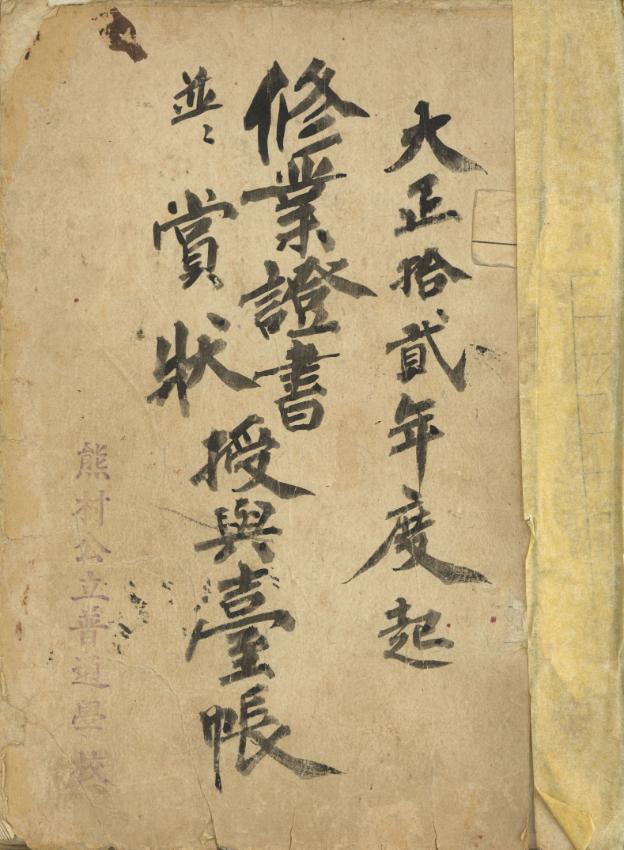 大正拾貳年度起
修業證書
並ニ賞狀
授與臺帳
熊村公立普通學校